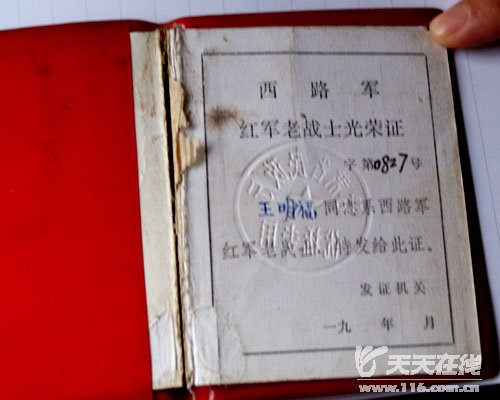 西路军
红军老战士光荣证
字第0827号
王明福同志系西路军
红军老战士特发给此证。
发证机关
一九 年 月
天天在线
www.116.com.cn